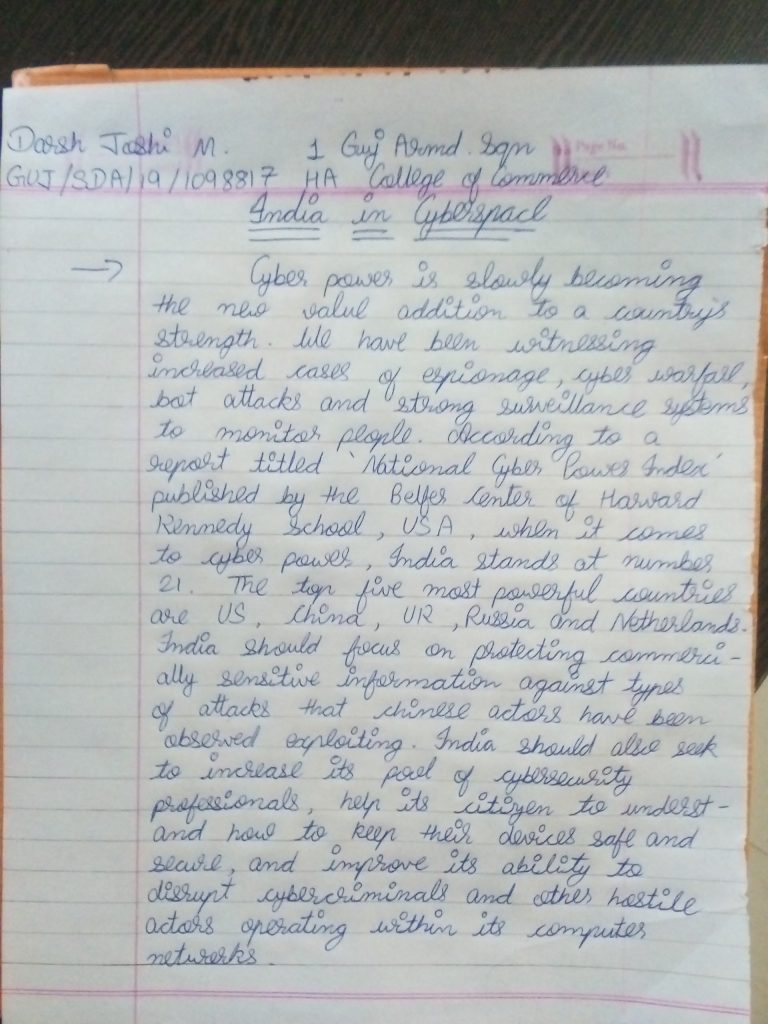 Darsh Joshi M. 1 Guj Armd. Sqn Page No.
GUJ/SDA/19/1098817 HA College of Commerce
India in Cyberspace
→ Cyber power is slowly becoming
the new value addition to a country's
strength. We have been witnessing
increased cases of espionage, cyber warfare,
bot attacks and strong surveillance systems
to monitor people. According to a
report titled 'National Cyber Power Index'
published by the Belfer Center of Harvard
Kennedy School, USA, when it comes
to cyber power, India stands at number
21. The top five most powerful countries
are US, China, UK, Russia and Netherlands.
India should focus on protecting commerci-
ally sensitive information against types
of attacks that chinese actors have been
observed exploiting. India should also seek
to increase its pool of cybersecurity
professionals, help its citizen to underst-
and how to keep their devices safe and
secure, and improve its ability to
disrupt cybercriminals and other hostile
actors operating within its computer
networks.